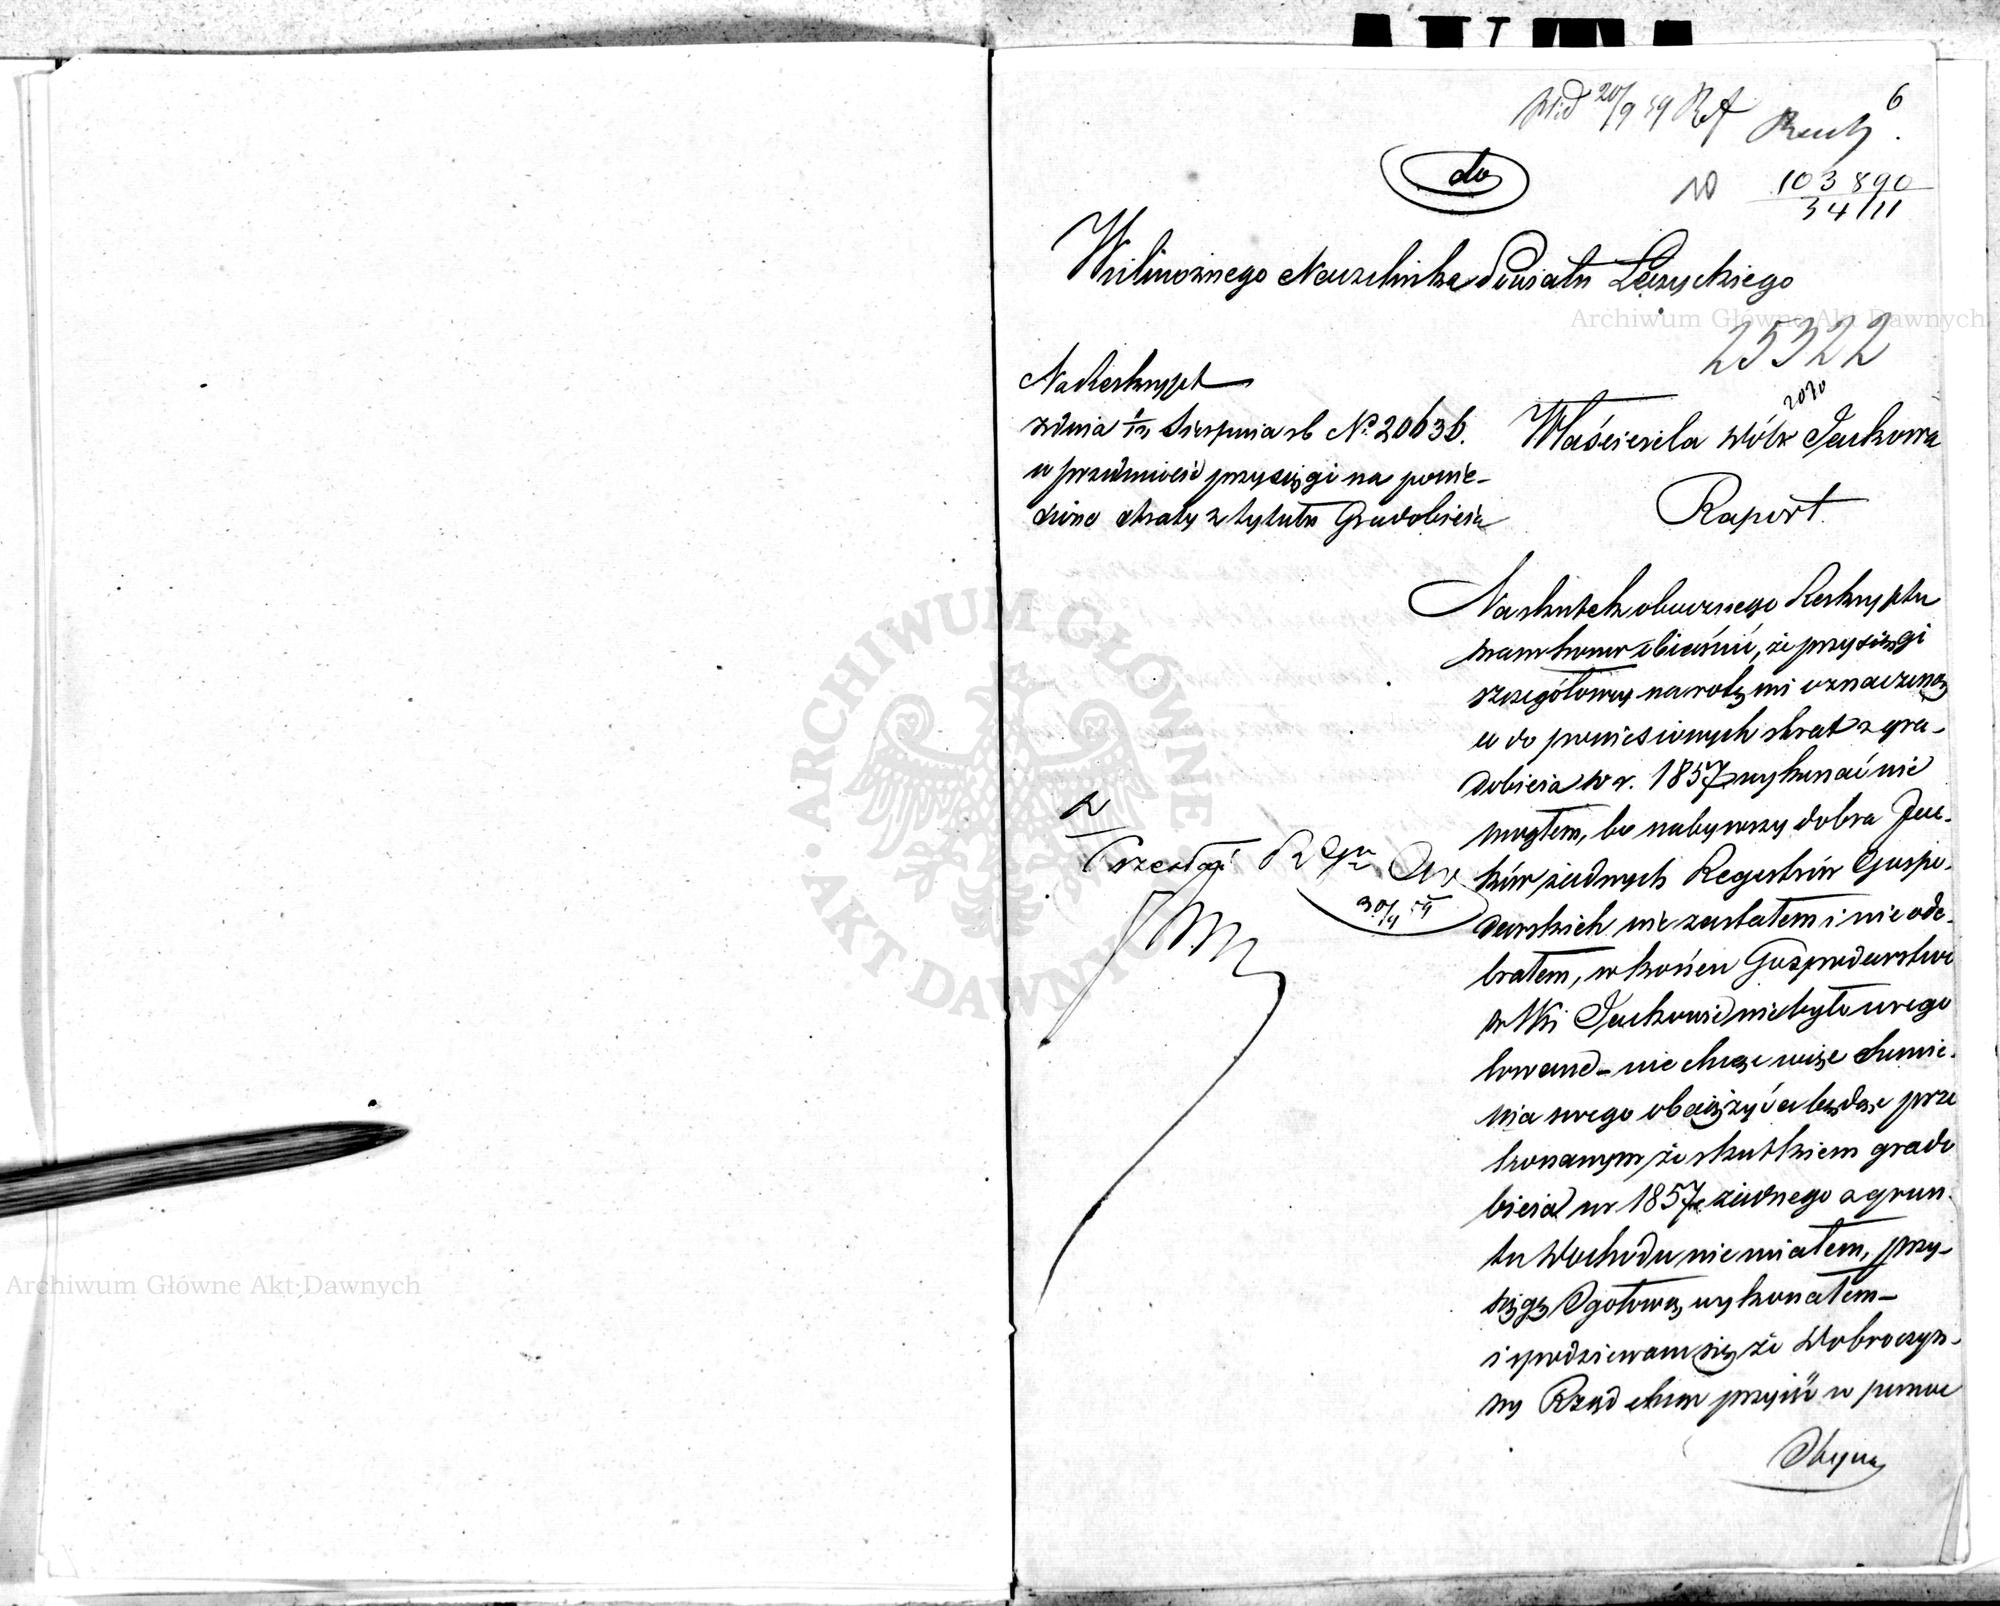 6
20/9 59
do
103890
34111
Wielmożnego Naczelnika Powiatu Łęczyckiego
Archiwum Główne Akt Dawnych
25322
Na Reskrypt
z dnia 1/13 Sierpnia rb No. 20636.
w przedmiocie przysięgi na ponie-
sione straty z tytułu Gradobicia
Właściciela dóbr Jackowa
Raport.
Na skutek obocznego Reskryptu
mam honor objaśnić, że przysięgi
szczegółowey na rotę mi oznaczoną
co do poniesionych strat z gra-
dobicia w r. 1857 wykonać nie
mogłem, bo nabywszy dobra Jac-
ków żadnych Regestrów Gospo-
darskich nie zastałem i nie ode-
brałem, w końcu Gospodarstwo
w Wsi Jackowie nie było urego
lowane – nie chcąc więc sumie-
nia swego obciążyć a będąc prze
konanym że skutkiem grado
bicia w 1857 żadnego z grun-
tu dochodu nie miałem, przy-
sięgę Ogólową wykonałem –
i spodziewam się że Dobroczyn-
ny Rząd chcąc przyiść w pomoc
ARCHIWUM GŁÓWNE
AKT DAWNYCH
Archiwum Główne Akt Dawnych